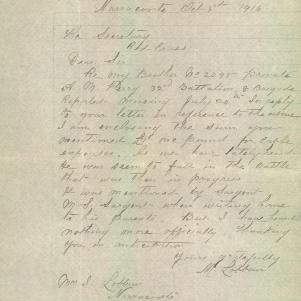 Naracoorte Oct 3rd 1916
The Secretary
Red Cross
Dear Sir
Re my Brother No 2098 private
A. M. Perry 32nd Battalion 8 Brigade
Reported Missing July 20th In reply
to your letter in reference to the above
I am enclosing the sum you
mentioned £1 one pound for cable
expenses. As we have lately heard
he was seen to fall in the battle
that was then in progress
He was mentioned by Sargent
M. S. Sargent when writing home
to his parents. But I have heard
nothing more officially thanking
you in anticipation
Yours gratefully
M.
Mrs J.
Naracoorte